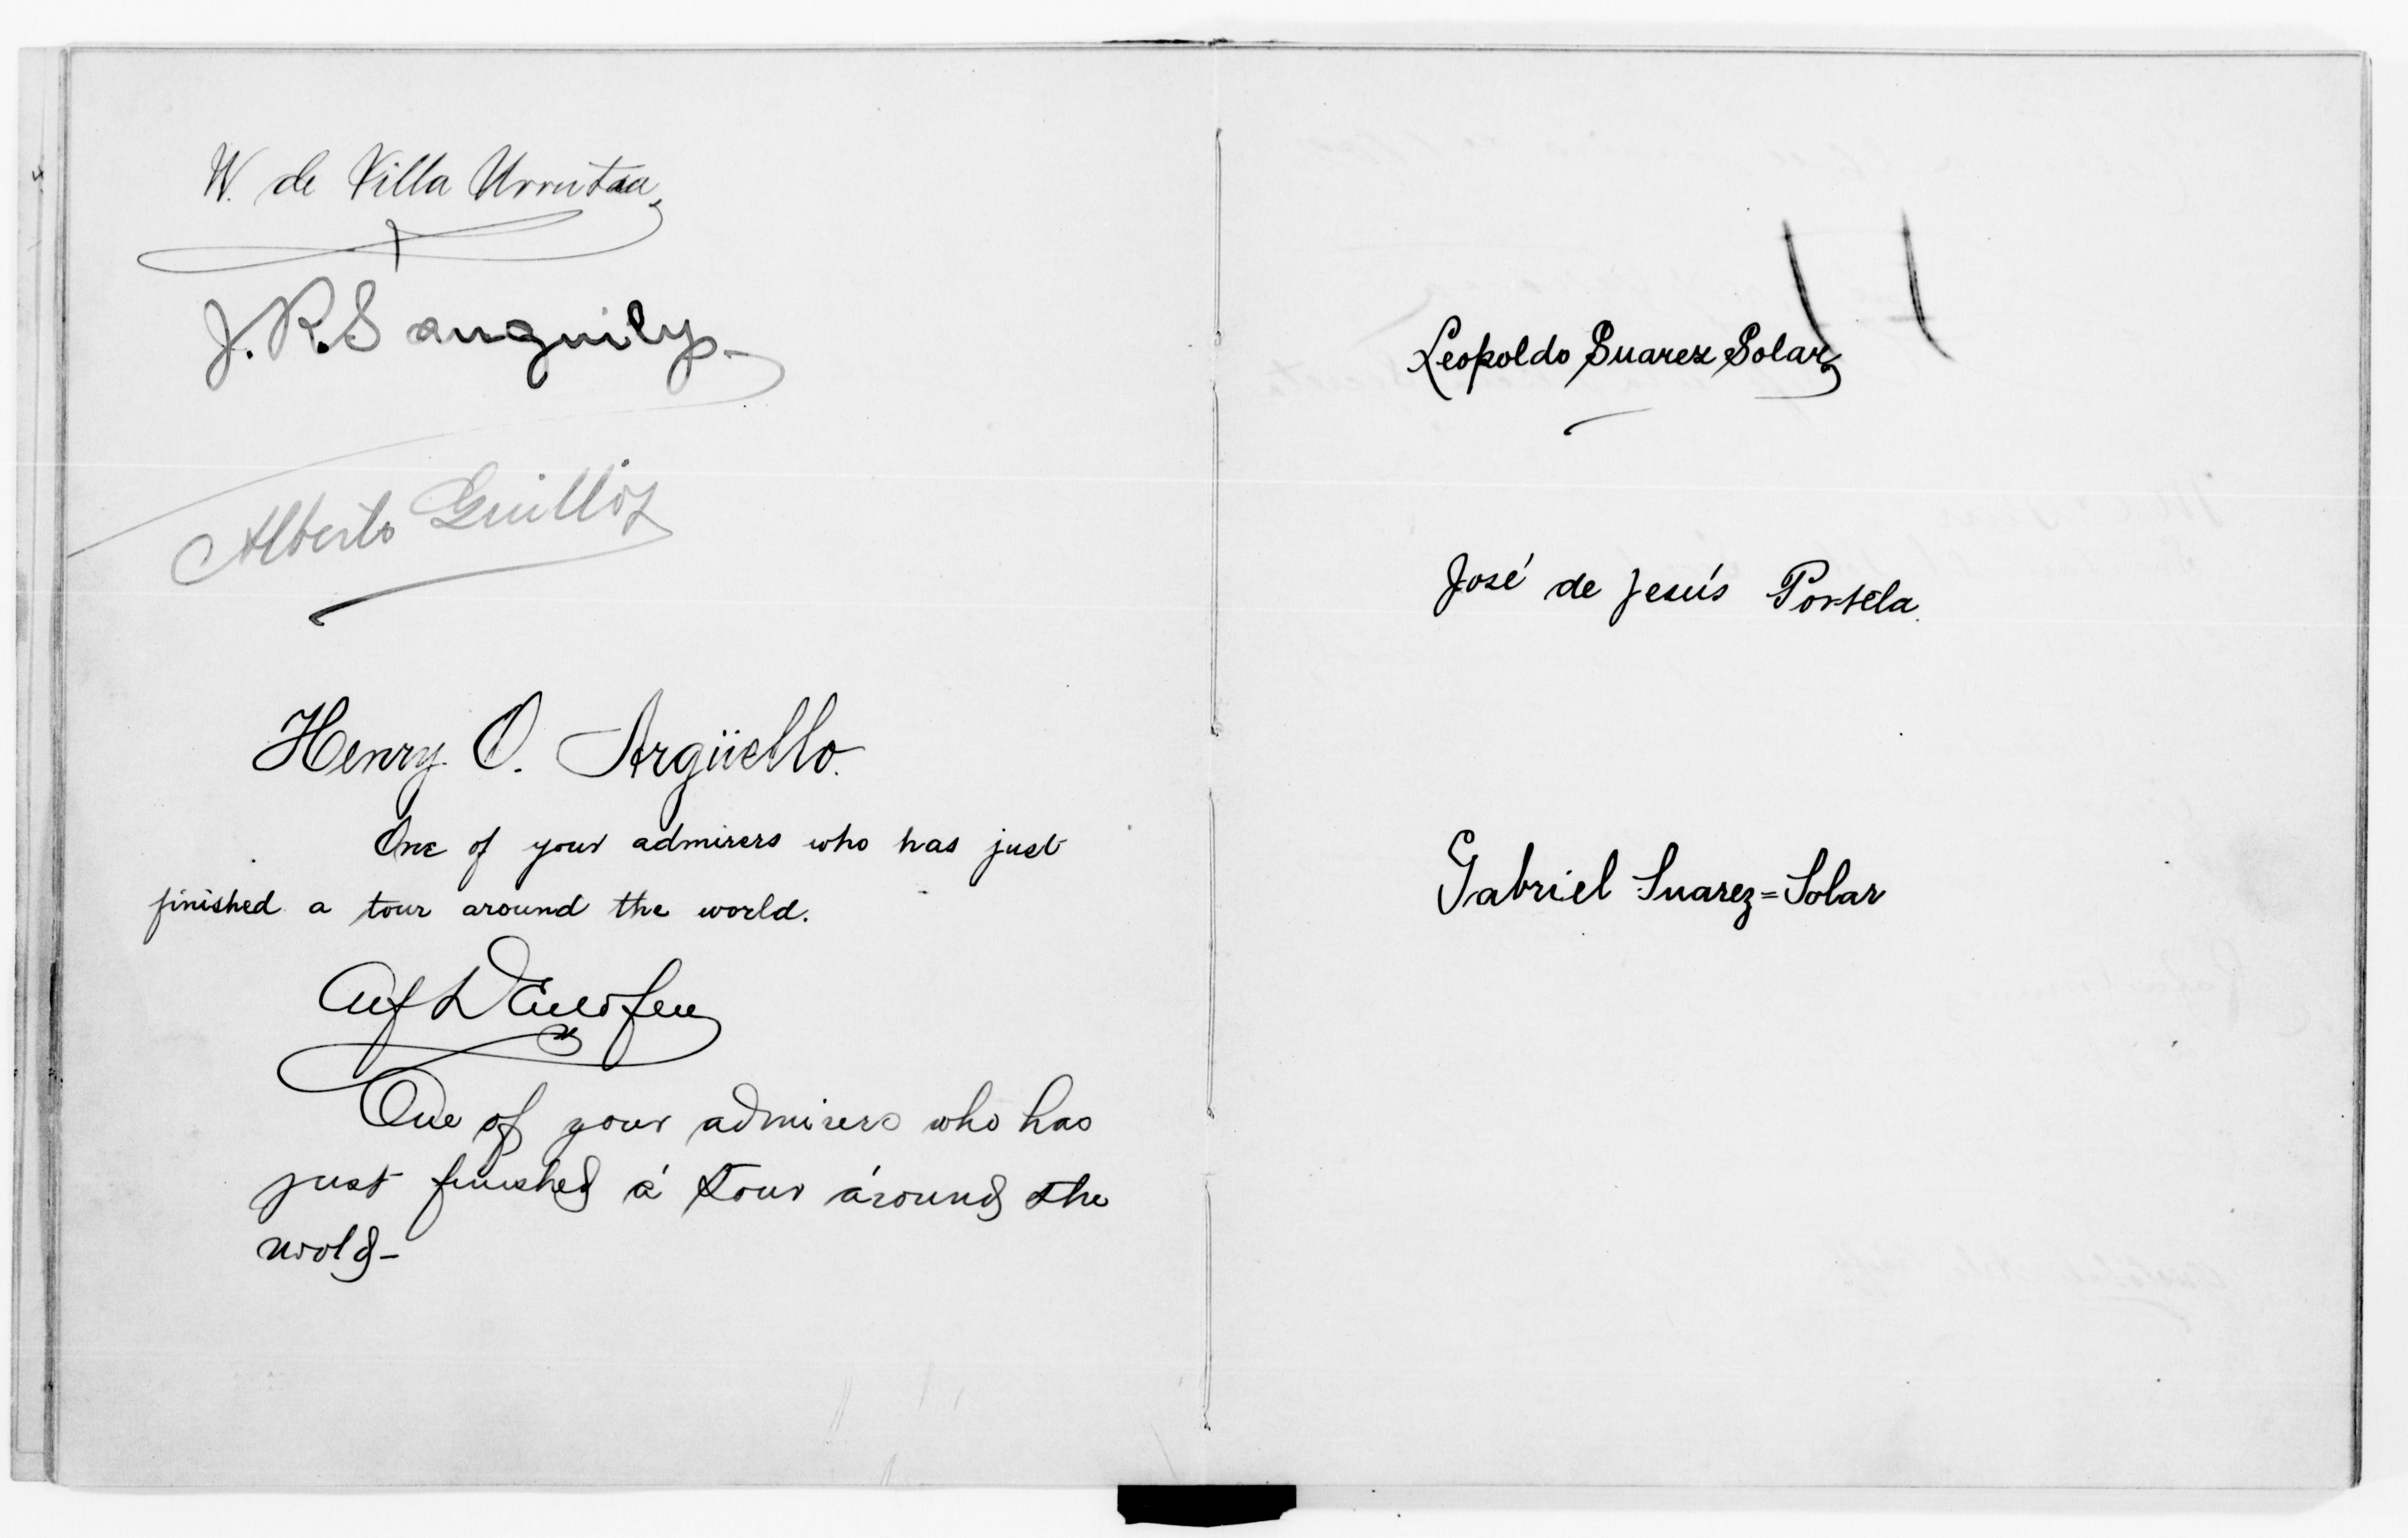 W. de Villa Urrutia
J. R. Sanguily
Alberto Guilloz
Henry O. Argüello.
One of your admirers who has just
finished a tour around the world.
One of your admirers who has
just finished á tour áround the
wold-
Leopoldo Suarez Solar
José de Jesús Portela.
Gabriel Suarez=Solar